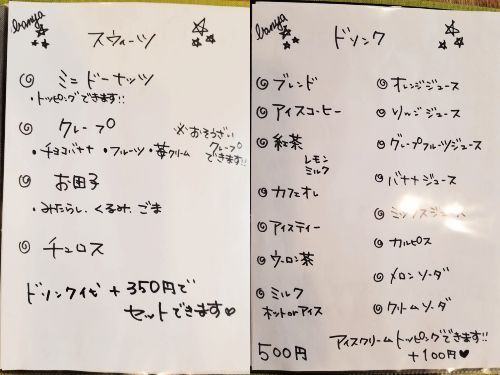 banya
スウィーツ
ミニドーナッツ
・トッピングできます!!
クレープ
※おそうざい
クレープ
できます!!
・チョコバナナ ・フルーツ ・苺クリーム
お団子
・みたらし、くるみ、ごま
チュロス
ドリンクイセ +350円で
セットできます♥
banya
ドリンク
ブレンド
アイスコーヒー
紅茶
レモン
ミルク
カフェオレ
アイスティー
ウーロン茶
ミルク
ホット or アイス
500円
オレンジジュース
リンゴジュース
グレープフルーツジュース
バナナジュース
ミックスジュース
カルピス
メロンソーダ
クリームソーダ
アイスクリームトッピングできます!!
+100円♥